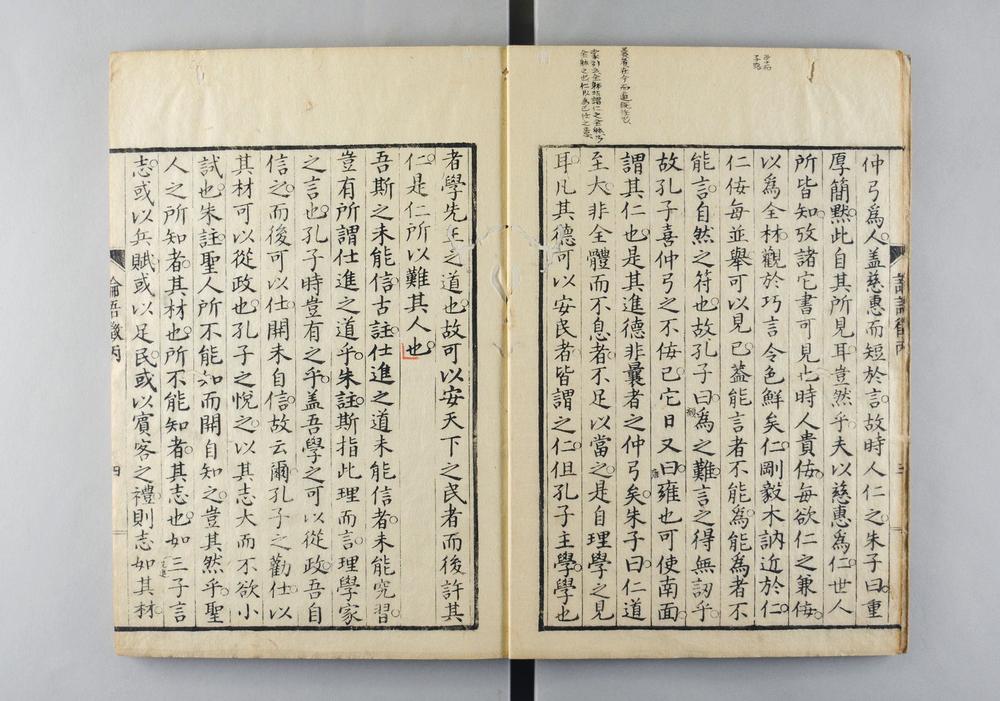 仲弓爲人盖慈惠而短於言故時人仁之朱子曰重
厚簡默此自其所見耳豈然乎夫以慈惠爲仁世人
所皆知攷諸它書可見也時人貴佞每欲仁之兼佞
以爲全材觀於巧言令色鮮矣仁剛毅木訥近於仁
仁佞每並舉可以見已葢能言者不能爲能爲者不
能言自然之符也故孔子曰爲之難言之得無訒乎
故孔子喜仲弓之不佞已它日又曰雍也可使南面
謂其仁也是其進德非曩者之仲弓矣朱子曰仁道
至大非全體而不息者不足以當之是自理學之見
耳凡其德可以安民者皆謂之仁但孔子主學學也
者學先王之道也故可以安天下之民者而後許其
仁是仁所以難其人也
吾斯之未能信古註仕進之道未能信者未能究習
豈有所謂仕進之道乎朱註斯指此理而言理學家
之言也孔子時豈有之乎盖吾學之可以從政吾自
信之而後可以仕開未自信故云爾孔子之勸仕以
其材可以從政也孔子之悅之以其志大而不欲小
試也朱註聖人所不能知而開自知之豈其然乎聖
人之所知者其材也所不能知者其志也如三子言
志或以兵賦或以足民或以賓客之禮則志如其材
論語徵丙
三
論語徵丙
四